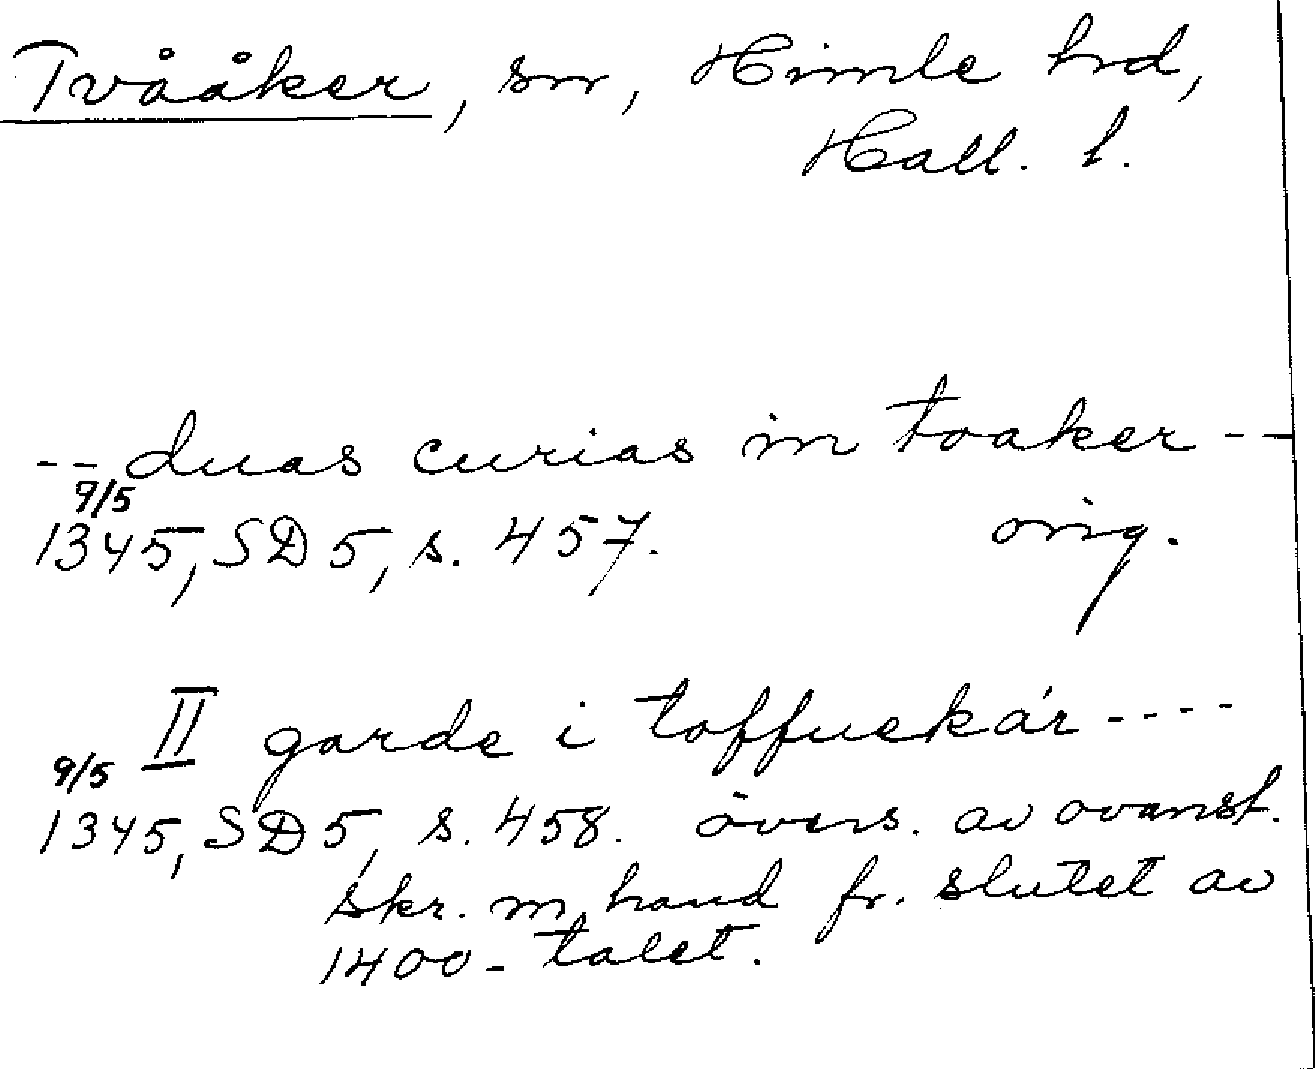 Tvååker, sn, Himle hd,
Hall. l.
-- duas curias in toaker --
9/5
1345, SD 5, s. 457. orig.
II garde i toffuekár ----
9/5
1345, SD 5, s. 458. övers. av ovanst.
skr. m. hand fr. slutet av
1400-talet.